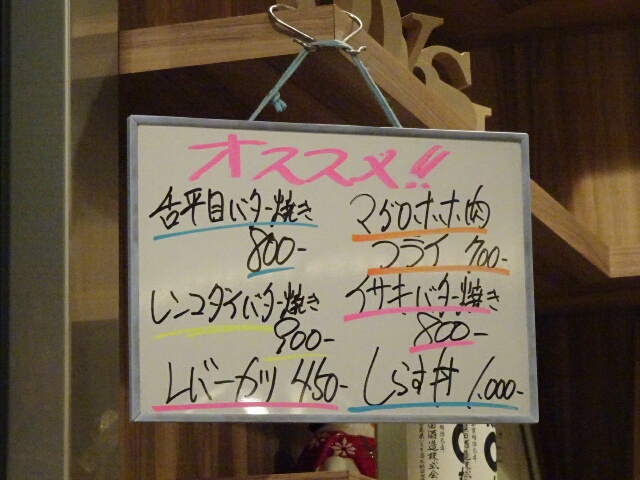 オススメ!!
舌平目バター焼き
800-
マグロホホ肉
フライ 700-
レンコダイバター焼き
900-
イサキバター焼き
800-
レバーカツ 450-
しらす丼 1,000-